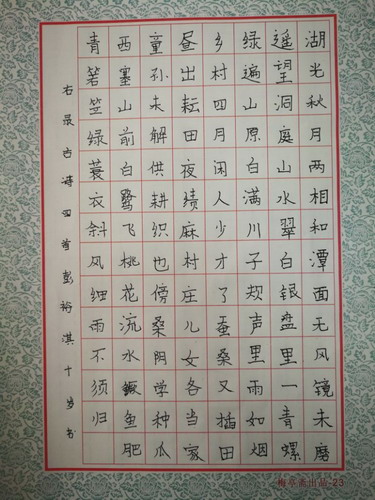 湖光秋月两相和潭面无风镜未磨
遥望洞庭山水翠白银盘里一青螺
绿遍山原白满川子规声里雨如烟
乡村四月闲人少才了蚕桑又插田
昼出耘田夜绩麻村庄儿女各当家
童孙未解供耕织也傍桑阴学种瓜
西塞山前白鹭飞桃花流水鳜鱼肥
青箬笠绿蓑衣斜风细雨不须归
右录古诗四首彭裕淇十岁书
出品-23